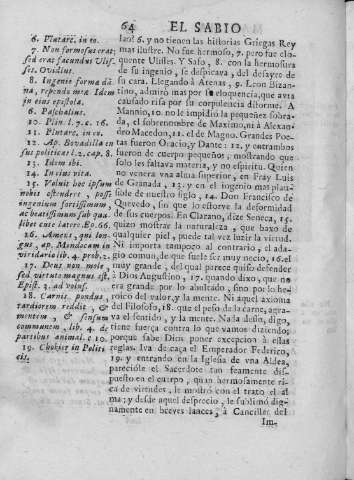 64 EL SABIO
6. Plutarc. in eo.
7. Non formosus erat, sed erat facundus Ulisses. Ovidius.
8. Ingenio forma dãna, rependo meæ Idem in eius epistola.
9. Pascbalius.
10. Plin. l. 7. c. 16.
11. Plutarc. in eo.
12. Ap. Bovadilla en sus politicas l. 2. cap. 8.
13. Idem ibi.
14. In eius vita.
15. Voluit hoc ipsum nobis ostendere, possè ingenium fortissimum, ac beatissimum sub qualibet cute latere. Ep. 66.
16. Amens, qui longus, ap. Mendozam in viridario lib. 4. prob. 2.
17. Deus non mole, sed virtute magnus est, Epist. 3. ad volus.
18. Carnis pondus, tardiorem reddit, & mentem, & sensum communem, lib. 4. de partibus animal. c. 10.
19. Chokier in Politicis.
lao! 6. y no tienen las historias Griegas Rey
mas ilustre. No fue hermoso, 7. pero fue eloquente Ulisses. Y Safo, 8. con la hermosura
de su ingenio, se despicava, del desayre de
su cara. Llegando à Atenas, 9. Leon Bizantino, admirò mas por su eloquencia, que avia
causado risa por su corpulencia disforme. A
Mannio, 10. no le impidiò la pequeñez sobrada, el sobrenombre de Maximo, ni à Alexandro Macedon, 11. el de Magno. Grandes Poetas fueron Oracio, y Dante: 12. y entrambos
fueron de cuerpo pequeños, mostrando que
solo les faltava materia, y no espiritu. Quien
no venera vna alma superior, en Fray Luis
de Granada, 13. y en el ingenio mas plausible de nuestro siglo, 14. Don Francisco de
Quevedo, sin que lo estorve la deformidad
de sus cuerpos. En Clarano, dize Seneca, 15.
quizo mostrar la naturaleza, que baxo de
qualquier piel, puede tal vez luzir la virtud.
Ni importa tampoco al contrario, el adagio comun, de que suele ser muy necio, 16. el
muy grande, del qual parece quiso defender
à Dios Augustino, 17. quando dixo, que no
era grande por lo abultado, sino por lo heroico del valor, y la mente. Ni aquel axioma
del Filosofo, 18. que el peso de la carne, agrava el sentido, y la mente. Nada desto, digo,
tiene fuerça contra lo que vamos diziendo;
porque sabe Dios poner excepcion à ellas
reglas. Iva de caça el Emperador Federico,
19. y entrando en la Iglesia de vna Aldea,
pareciòle el Sacerdote tan feamente dispuesto en el cuerpo, quan hermosamente rica de virtudes, le mostrò con el trato el alma; y desde aquel desprecio, le sublimò dignamente en breves lances, à Canciller del
Im-